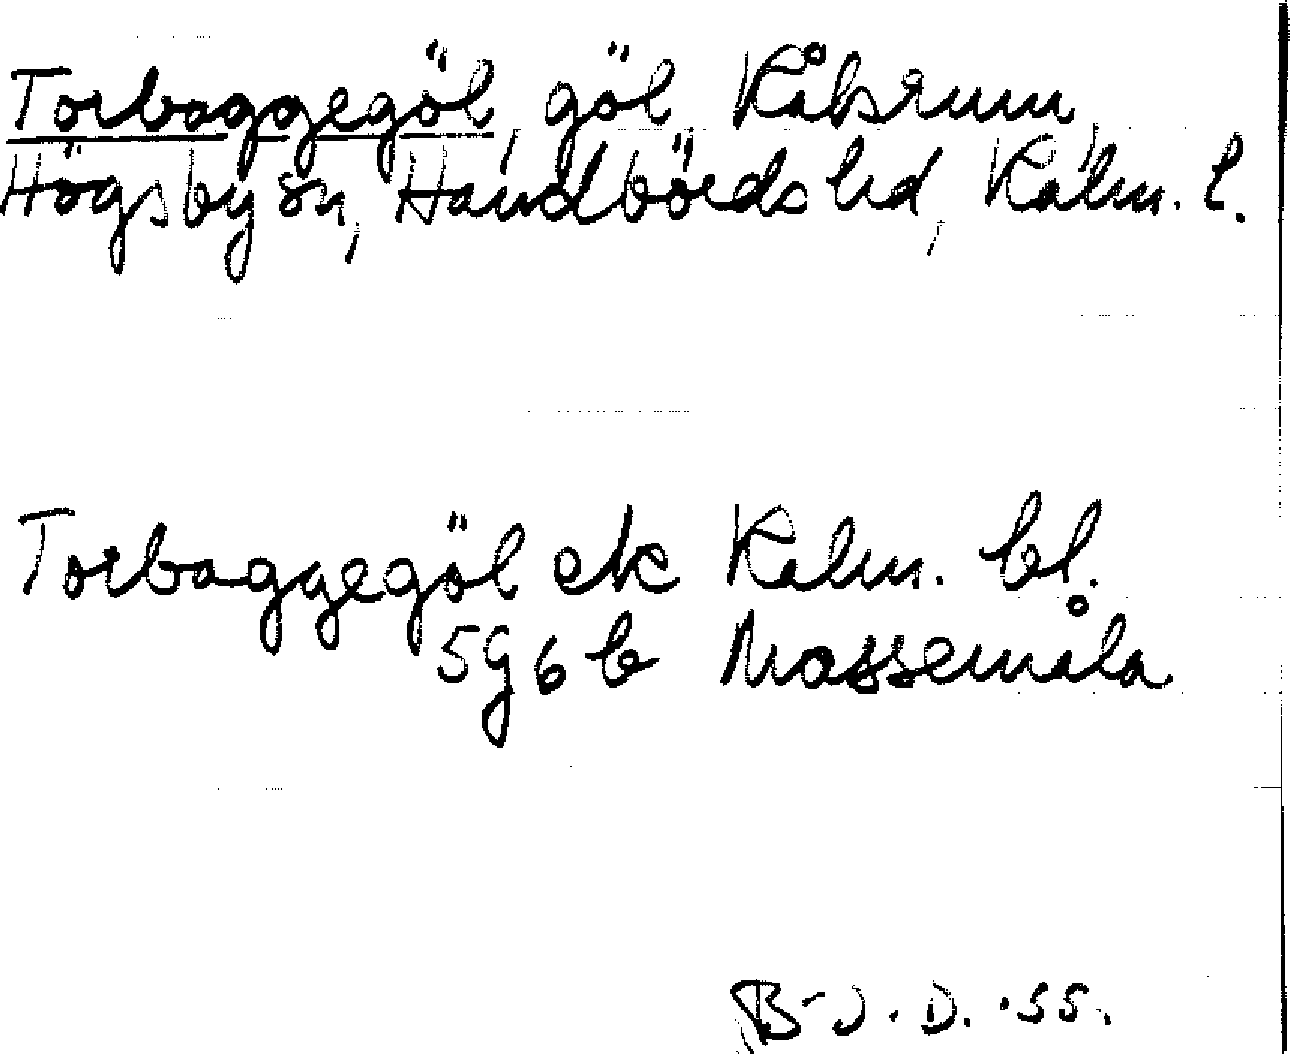 Torbaggegöl, göl, Kåksrum,
Högsby sn, Handbörds hd, Kalm. l.
Torbaggegöl ek Kalm. bl.
5g6b Mossemåla
B-J.D. -55.